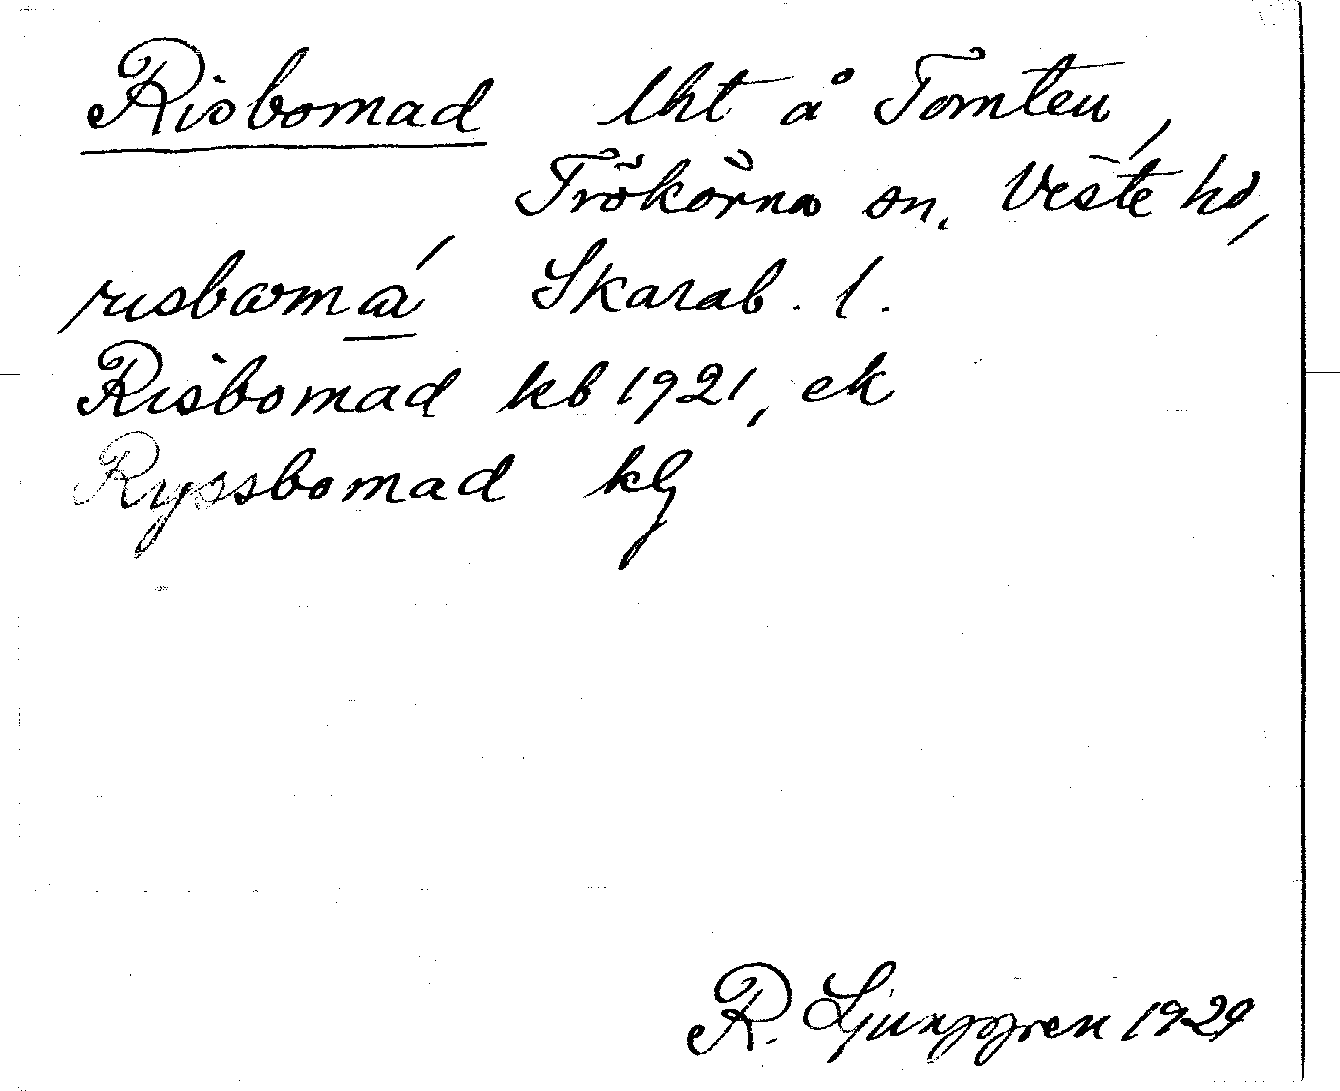 Risbomad lht å Tomten,
Trökörna sn. Viste hd,
risbωmά Skarab. l.
Risbomad kb 1921, ek
Ryssbomad kg
R. Ljunggren 1929